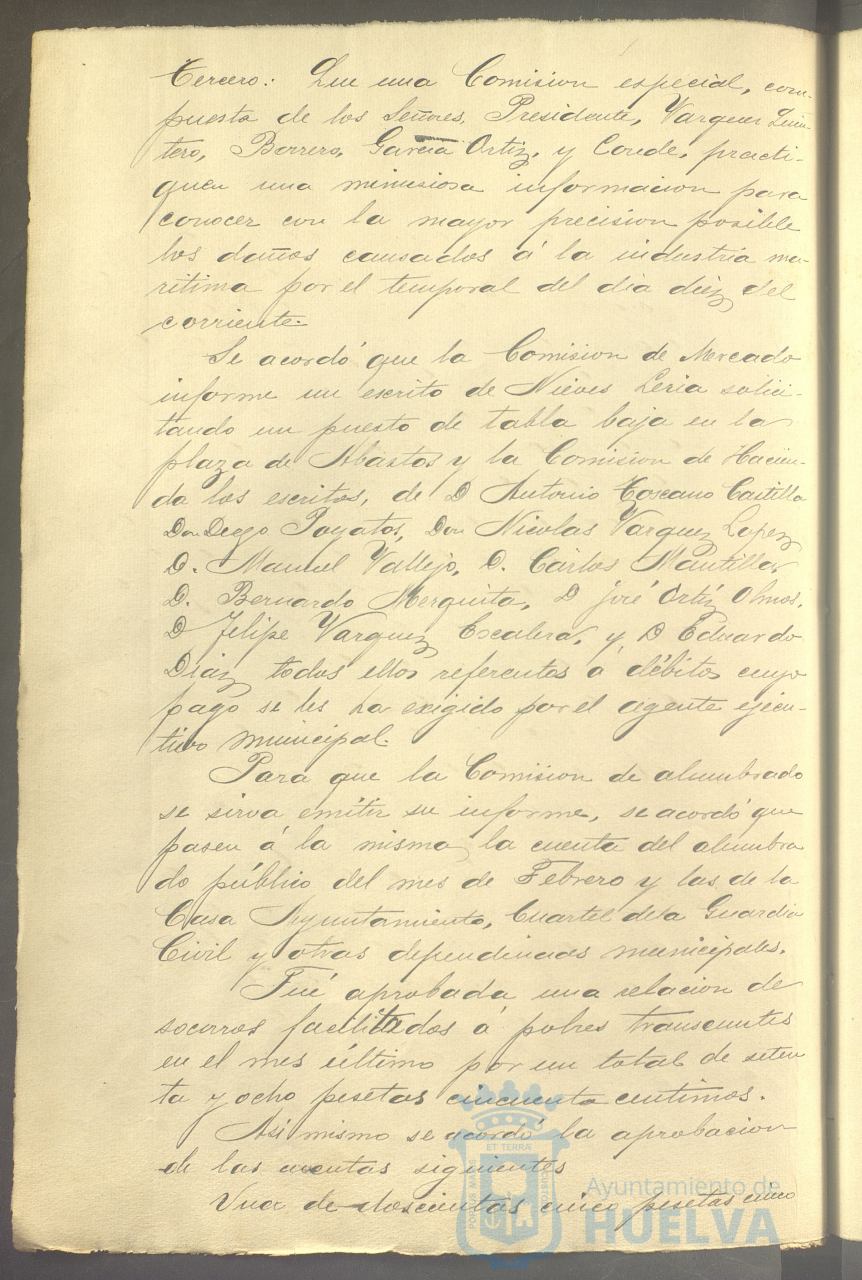 Tercero: Que una Comision especial, com-
puesta de los Señores, Presidente, Vazquez Quin-
tero, Borrero, García Ortiz, y Conde, practi-
quen una minusiosa informacion para
conocer con la mayor precision posible
los daños causados á la industria ma-
ritima por el temporal del dia diez del
corriente.
Se acordó que la Comision de Mercado
informe un escrito de Nieves Leria solici-
tando un puesto de tabla baja en la
plaza de Abastos y la Comision de Hacien-
da los escritos, de D Antonio Toscano Castilla
Don Diego Poyatos, Don Nicolas Vazquez Lopez
D. Manuel Vallejo, D. Cárlos Mantilla,
D. Bernardo Merquita, D José Ortíz Olmos,
D Felipe Vazquez Escalera, y D Eduardo
Diaz todos ellos referentes á débitos cuyo
pago se les ha exigido por el agente ejecu-
tivo municipal.
Para que la Comision de alumbrado
se sirva emitir su informe, se acordó que
pasen á la misma la cuenta del alumbra
do público del mes de Febrero y las de la
Casa Ayuntamiento, Cuartel de la Guardia
Civil y otras dependencias municipales.
Fué aprobada una relacion de
socorros facilitados á pobres transeuntes
en el mes último por un total de seten
ta y ocho pesetas cincuenta centimos.
Asi mismo se acordó la aprobacion
de las cuentas siguientes
Una de doscientas cinco pesetas cinco
Ayuntamiento de
HUELVA